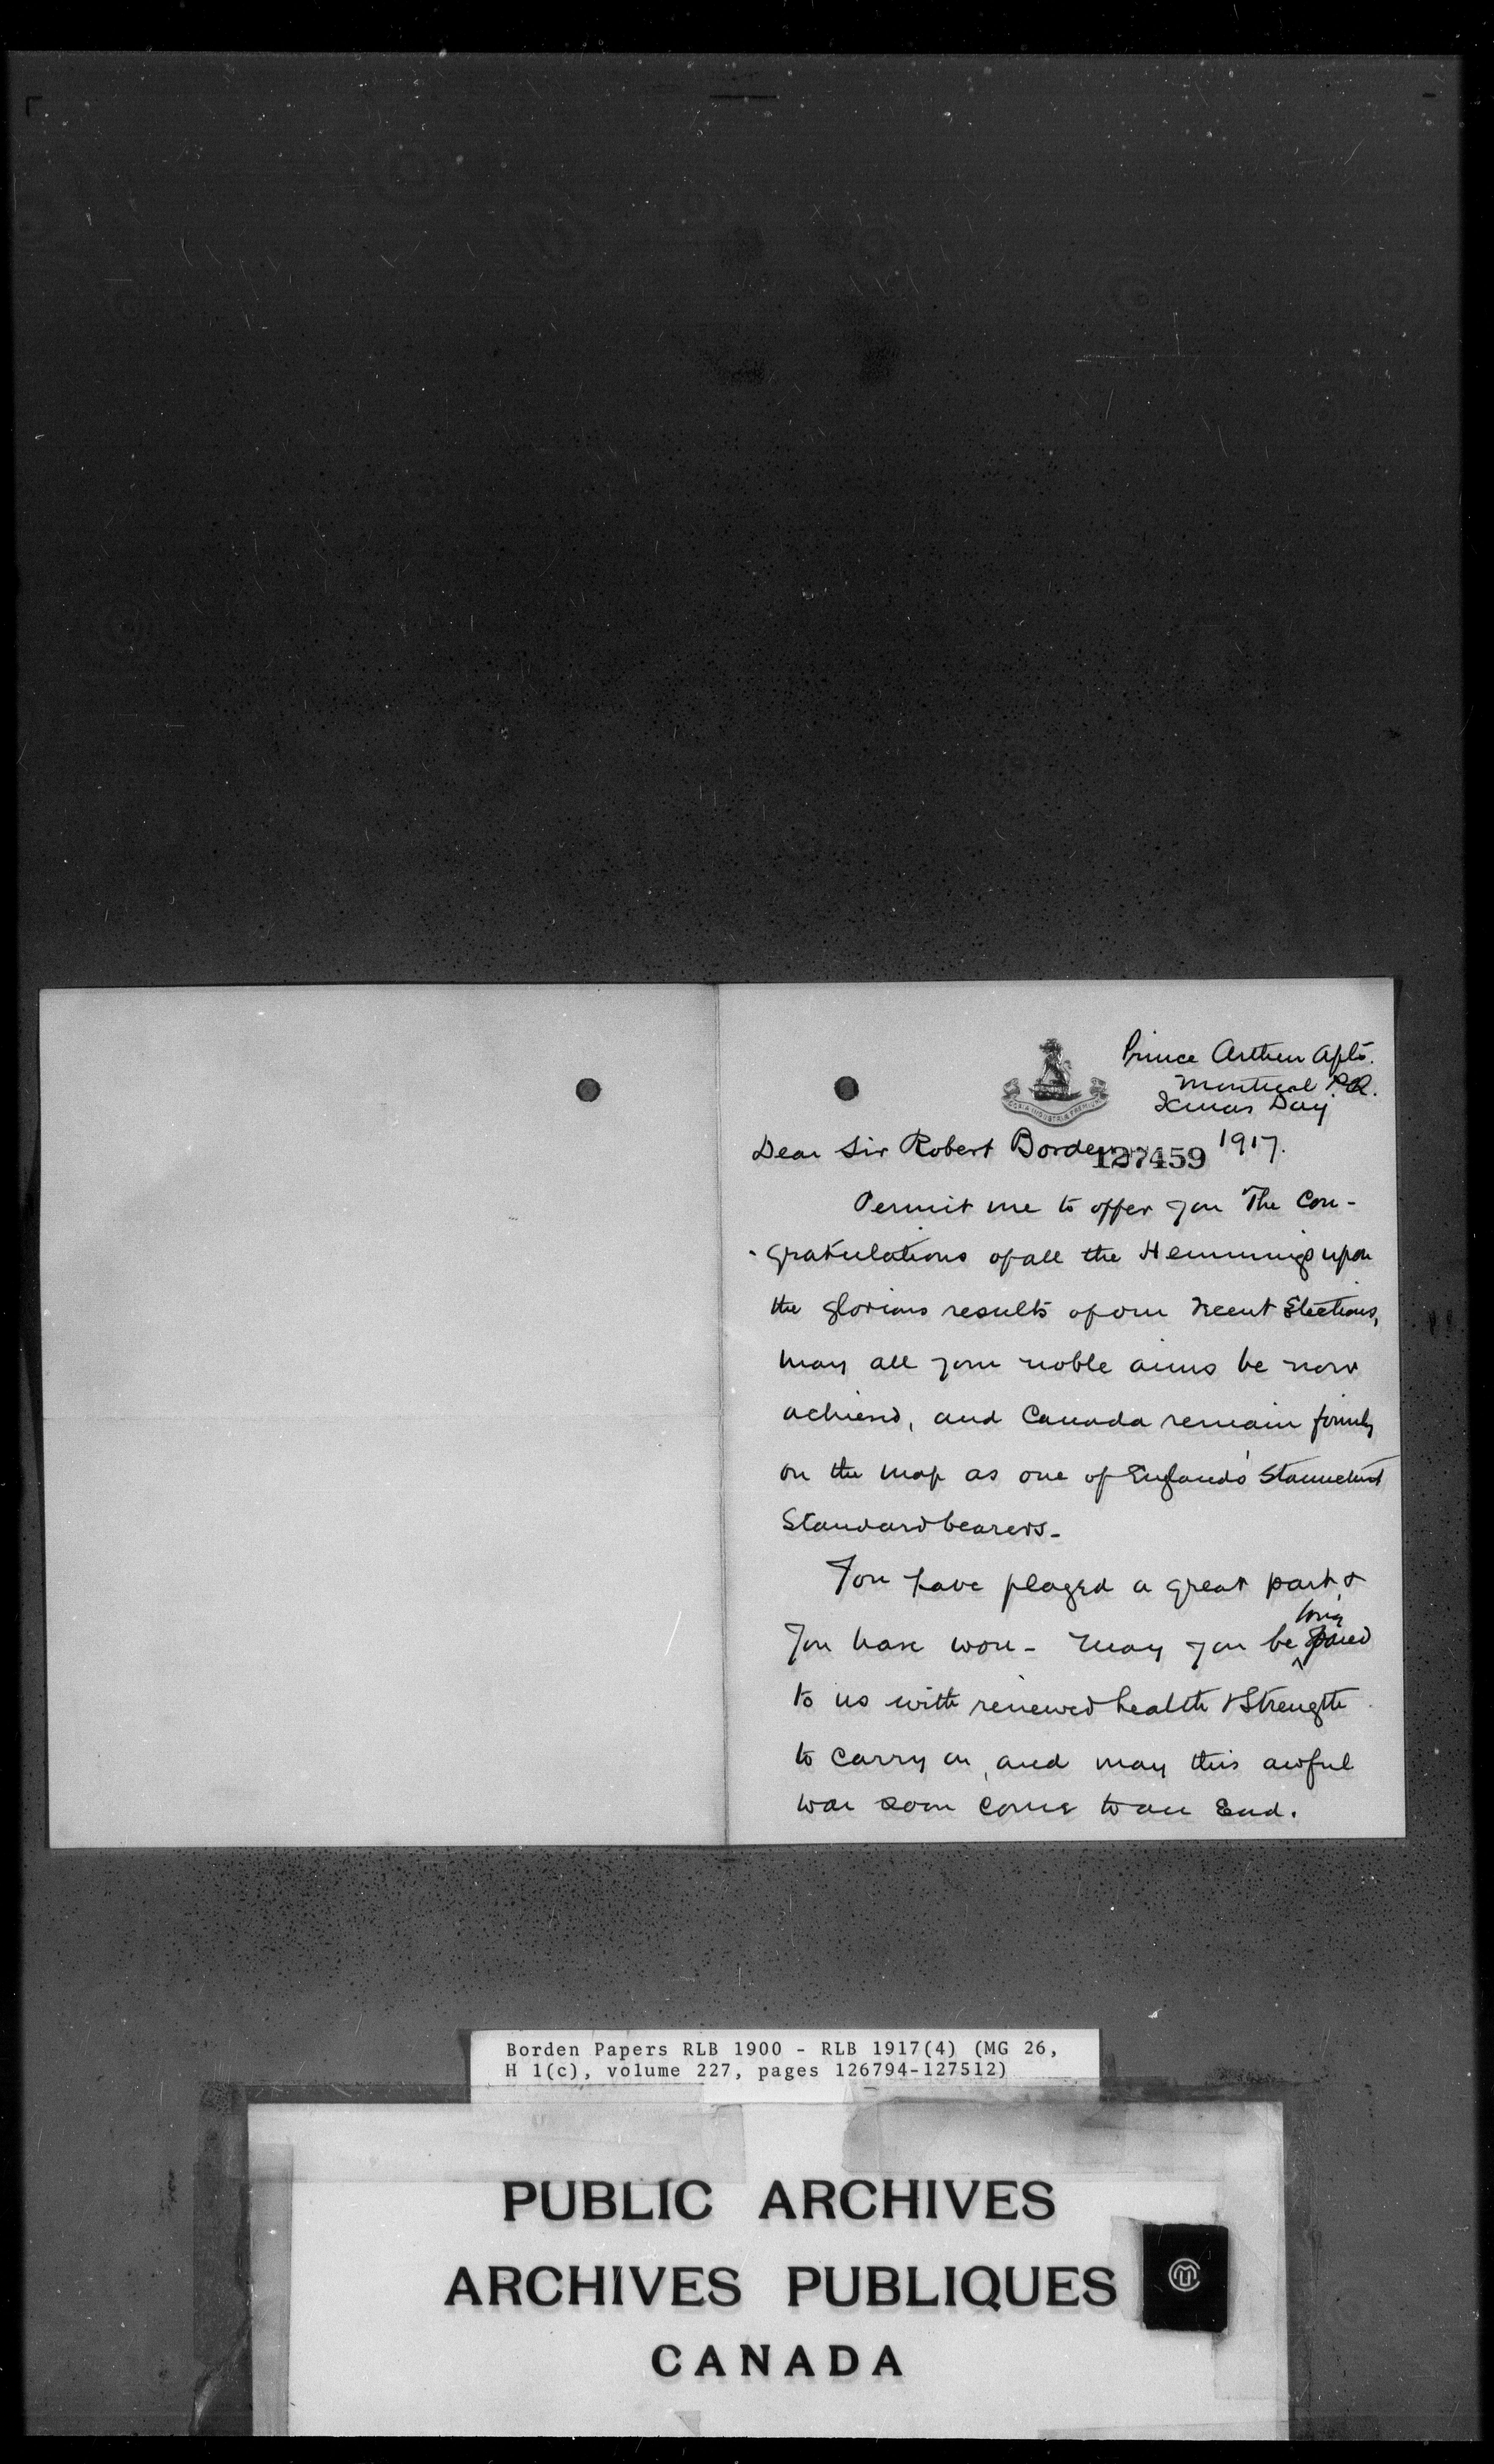 Prince Arthur Apts.
Montreal P.Q.
Xmas Day
1917.
Dear Sir Robert Borden
127459
Permit me to offer you The Con-
gratulations of all the Hemmings upon
the glorious results of our recent Elections,
may all your noble aims be now
achievd, and Canada remain firmly
on the map as one of England's Staunchest
Standard bearers-
You have played a great part &
long
You have won - may you be spared
to us with renewed health & Strength
to carry on, and may this awful
war soon come to an End.
Borden Papers RLB 1900 - RLB 1917(4) (MG 26,
H 1(c), volume 227, pages 126794-127512)
PUBLIC ARCHIVES
ARCHIVES PUBLIQUES
CANADA